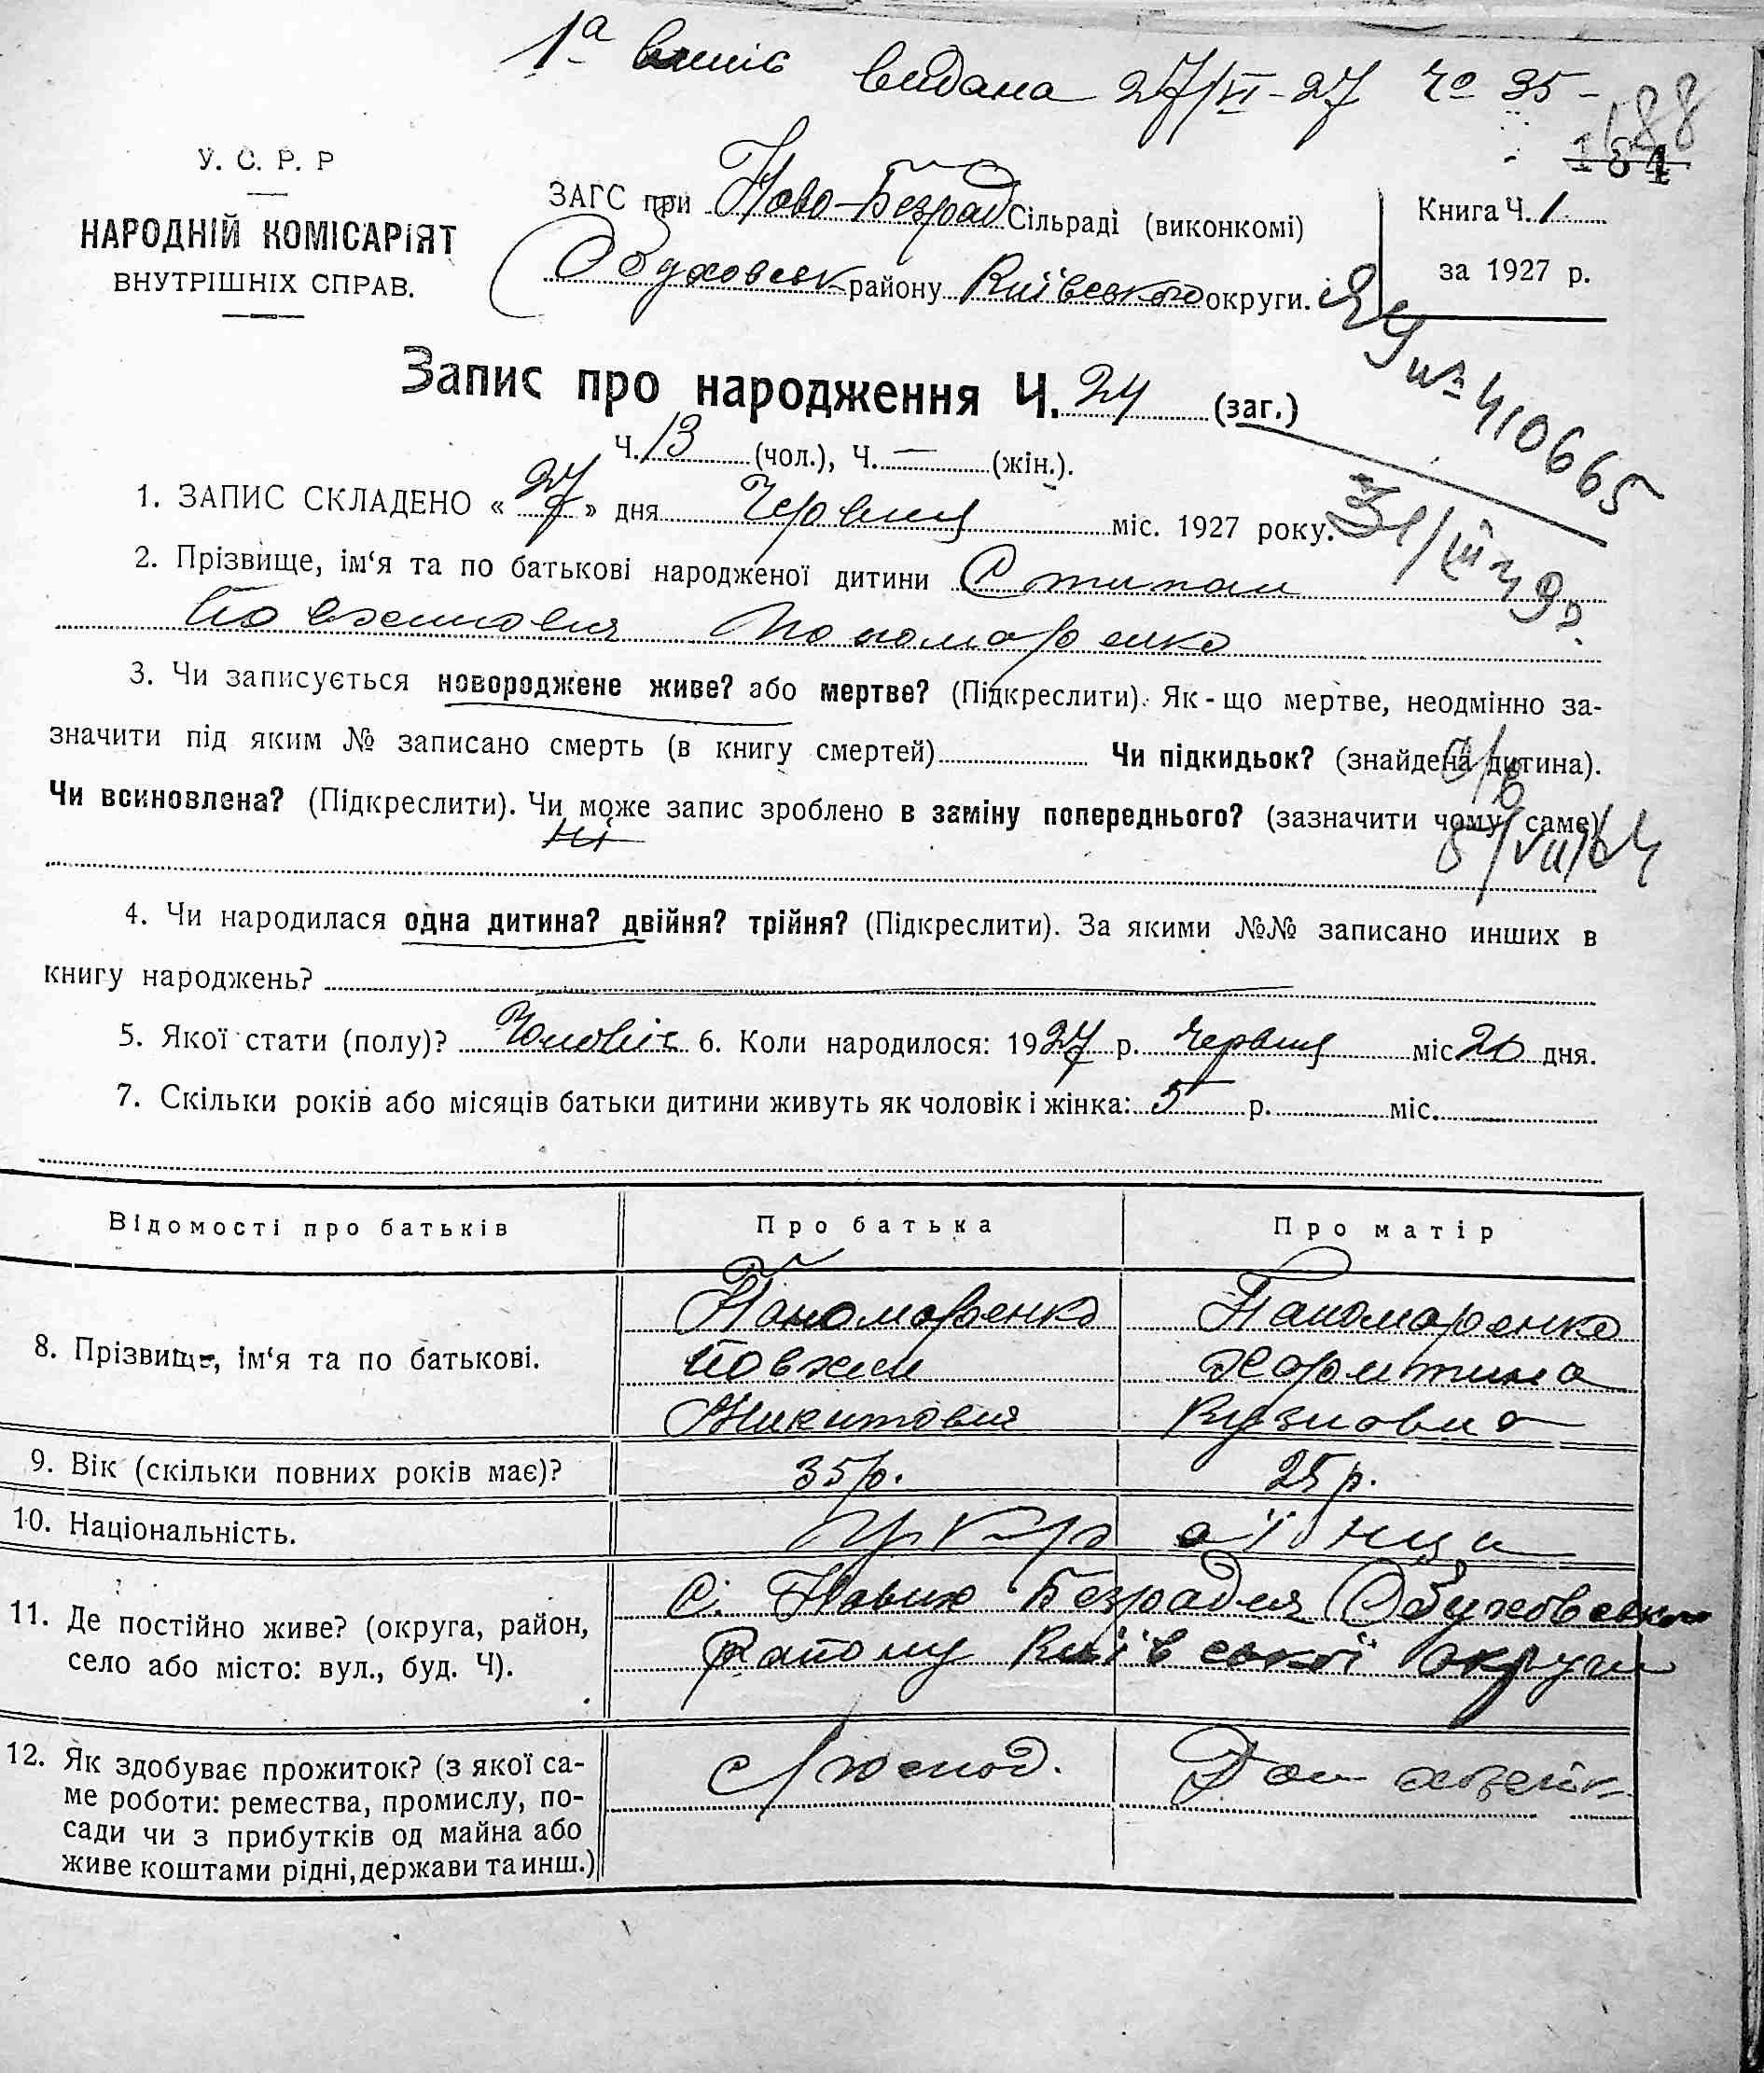 1а випис видана 27/VI-27 Чо 35-
188
184
У. С. Р. Р
НАРОДНІЙ КОМІСАРІЯТ
ВНУТРІШНІХ СПРАВ.
ЗАГС при Ново-Безрад Сільраді (виконкомі)
Обуховськ району Київського округи.
Книга Ч. 1
за 1927 р.
Запис про народження Ч. 24 (заг.)
Ч. 13 (чол.), Ч. — (жін.).
№ 410665
31/III 49р.
1. ЗАПИС СКЛАДЕНО « 27 » дня Червня міс. 1927 року.
2. Прізвище, ім‘я та по батькові народженої дитини Степан
Йовхимович Пономаренко
3. Чи записується новороджене живе? або мертве? (Підкреслити). Як-що мертве, неодмінно за-
значити під яким № записано смерть (в книгу смертей) Чи підкидьок? (знайдена дитина).
Чи всиновлена? (Підкреслити). Чи може запис зроблено в заміну попереднього? (зазначити чому саме)
ні
5/VII/64
4. Чи народилася одна дитина? двійня? трійня? (Підкреслити). За якими №№ записано инших в
книгу народжень?
5. Якої стати (полу)? Чоловіч 6. Коли народилося: 1927 р. Червня міс 20 дня.
7. Скільки років або місяців батьки дитини живуть як чоловік і жінка: 5 р. міс.
Відомості про батьків Про батька Про матір
8. Прізвище, ім‘я та по батькові.
Пономаренко Пономаренко
Йовхим Харитина
Микитович Кузмовна
9. Вік (скільки повних років має)? 35р. 25р.
10. Національність. Українци
11. Де постійно живе? (округа, район,
село або місто: вул., буд. Ч).
С. Нових Безрадич Обуховського
Району Київської округи
12. Як здобуває прожиток? (з якої са-
ме роботи: ремества, промислу, по-
сади чи з прибутків од майна або
живе коштами рідні, держави та инш.)
С/господ. Дом хозяйк